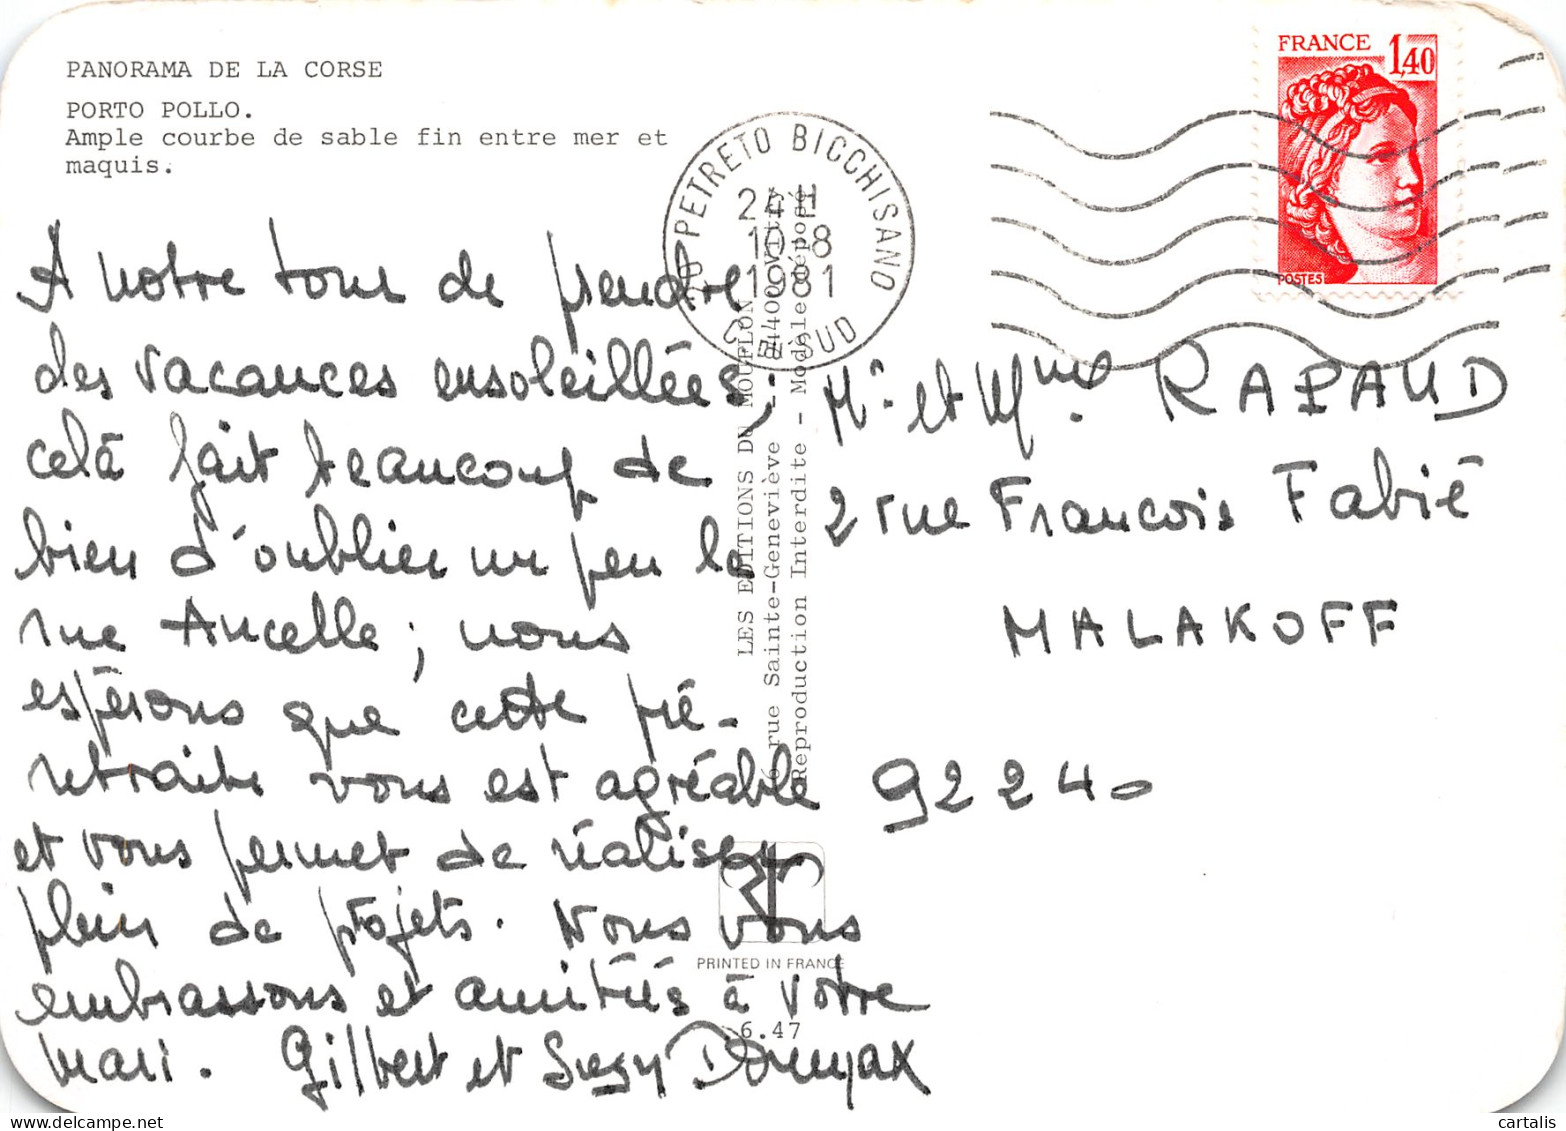 PANORAMA DE LA CORSE
PORTO POLLO.
Ample courbe de sable fin entre mer et
maquis.
FRANCE 1,40
POSTES
PETRETO BICCHISANO
24H
10-8
1981
CSE SUD
A notre tour de prendre
des vacances ensoleillées ;
celà fait beaucoup de
bien d'oublier un peu la
rue Ancelle ; nous
espérons que cette pré-
retraite vous est agréable
et vous permet de réaliser
plein de projets. Nous vous
embrassons et amitiés à votre
mari. Gilbert et Suzy
LES EDITIONS DU MOUFLON
6 rue Sainte-Geneviève - 94400 VITRY
Reproduction Interdite - Modèle déposé
Mr. et Mme. RAPAUD
2 rue Francois Fabié
MALAKOFF
92240
PRINTED IN FRANCE
6.47
delcampe.net
cartalis